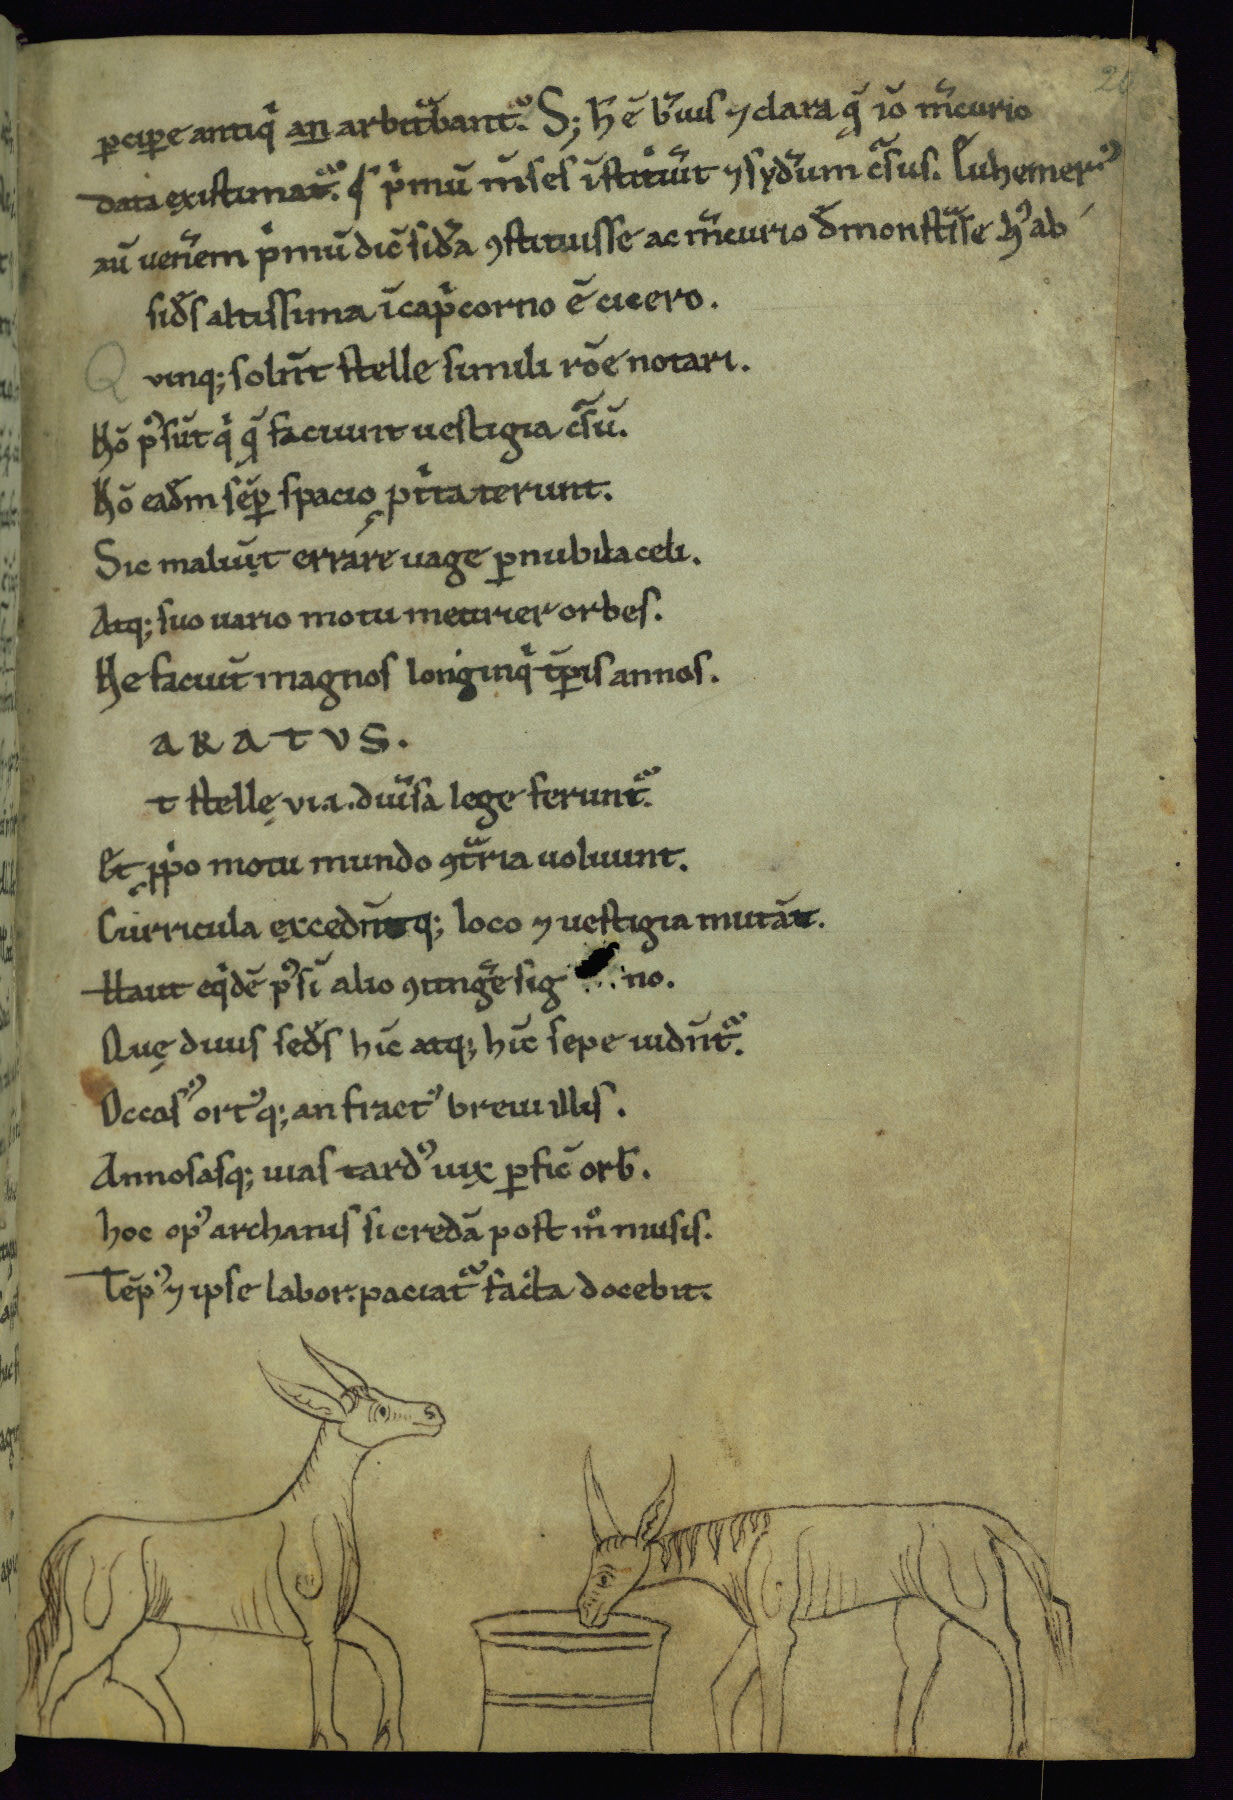 ꝑcipe antiqͥ an arbitᷓbantᷣ. S; h̄ ē b̄uis ⁊ clara q̄ iō m̄curio
data existimatᷣ. qͥ pͥmū m̄ses īstituͥūt ⁊ syd̄um c̄sus. Euhemerꝰ
aū uen̄em pͥmū dic̄ sid̄a ꝯstituisse ac m̄curio d̄monstᷓsse hꝰ ab
sid̄s altissima ī capͥcorno ē cicero.
Q vinq; soln̄t stelle simili rōe notari.
Nō pꝰsūt qͥ q̄ faciunt uestigia c̄sū.
Nō ead̄m sēꝑ spacio ꝓtͥta terunt.
Sic maluūt errare uage ꝑ nubila celi.
Atq; suo uario motu metirier orbes.
He faciūt magnos longinqͥ tꝑ̄is annos.
ARATVS.
t stellę v.i.a. diu̾sa lege feruntᷣ.
Et ꝓpͥo motu mundo ꝯtᷓria uoluunt.
Curricula excedn̄tq; loco ⁊ uestigia mutāt.
Haut eqͥdē pꝰsī alio ꝯtinḡe sig no.
Quę diuis sed̄s hīc atq; hīc sepe uidn̄tᷣ.
Occasꝰ ortꝰq; anfractꝰ breui illis.
Annosasq; uias tardꝰ uix ꝑfic̄ orb̄.
hoc opꝰ archanis si credā post mͦ musis.
Tēpꝰ ⁊ ipse labor. paciatᷣ fac̄ta docebit.